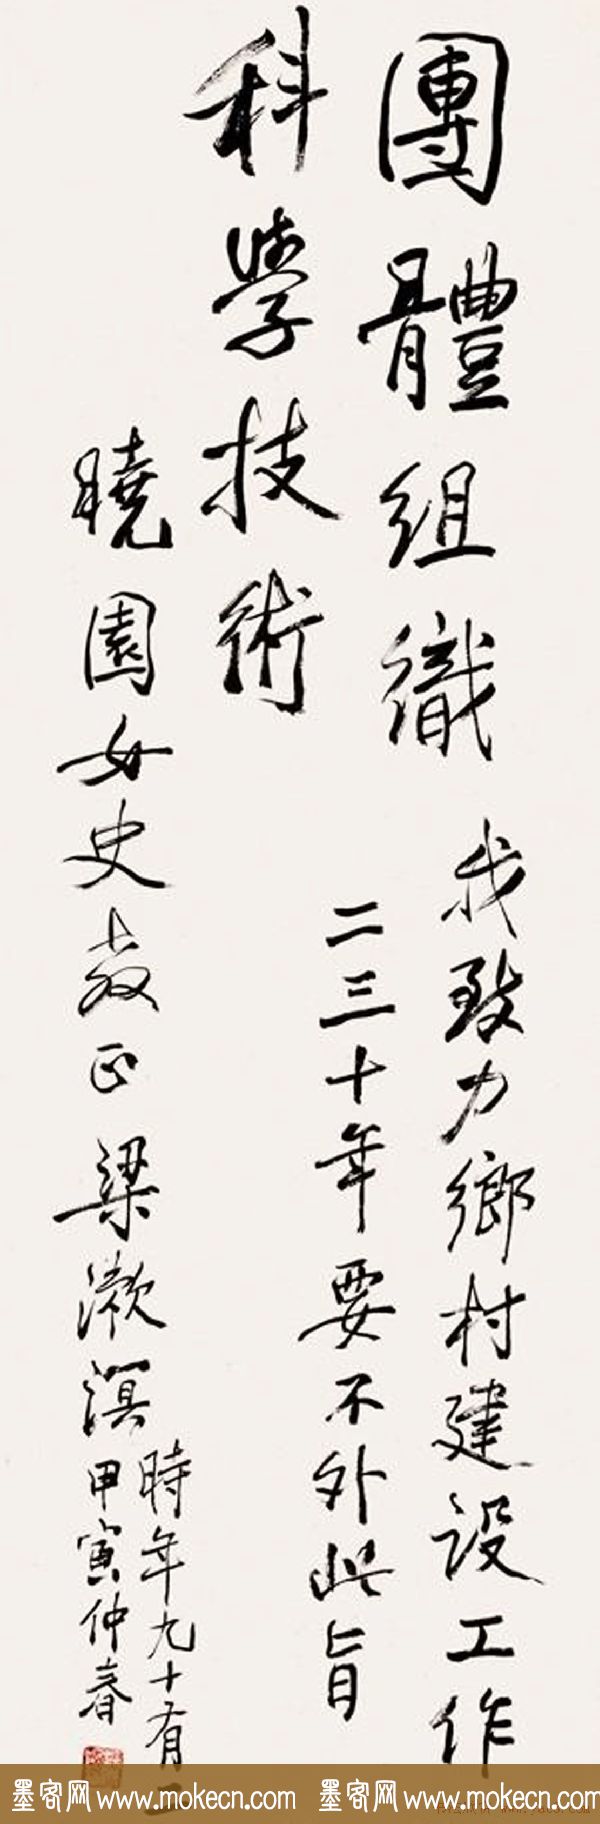 團體組織
科學技術
我致力鄉村建设工作
二三十年要不外此旨
曉園女史教正 梁漱溟
時年九十有二
甲寅仲春
墨客网 www.mokecn.com 墨客网 www.mokecn.com